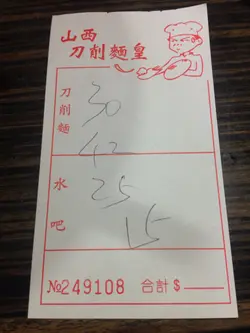 山西
刀削麵皇
刀削麵
30
42
水吧
25
15
№249108 合計$